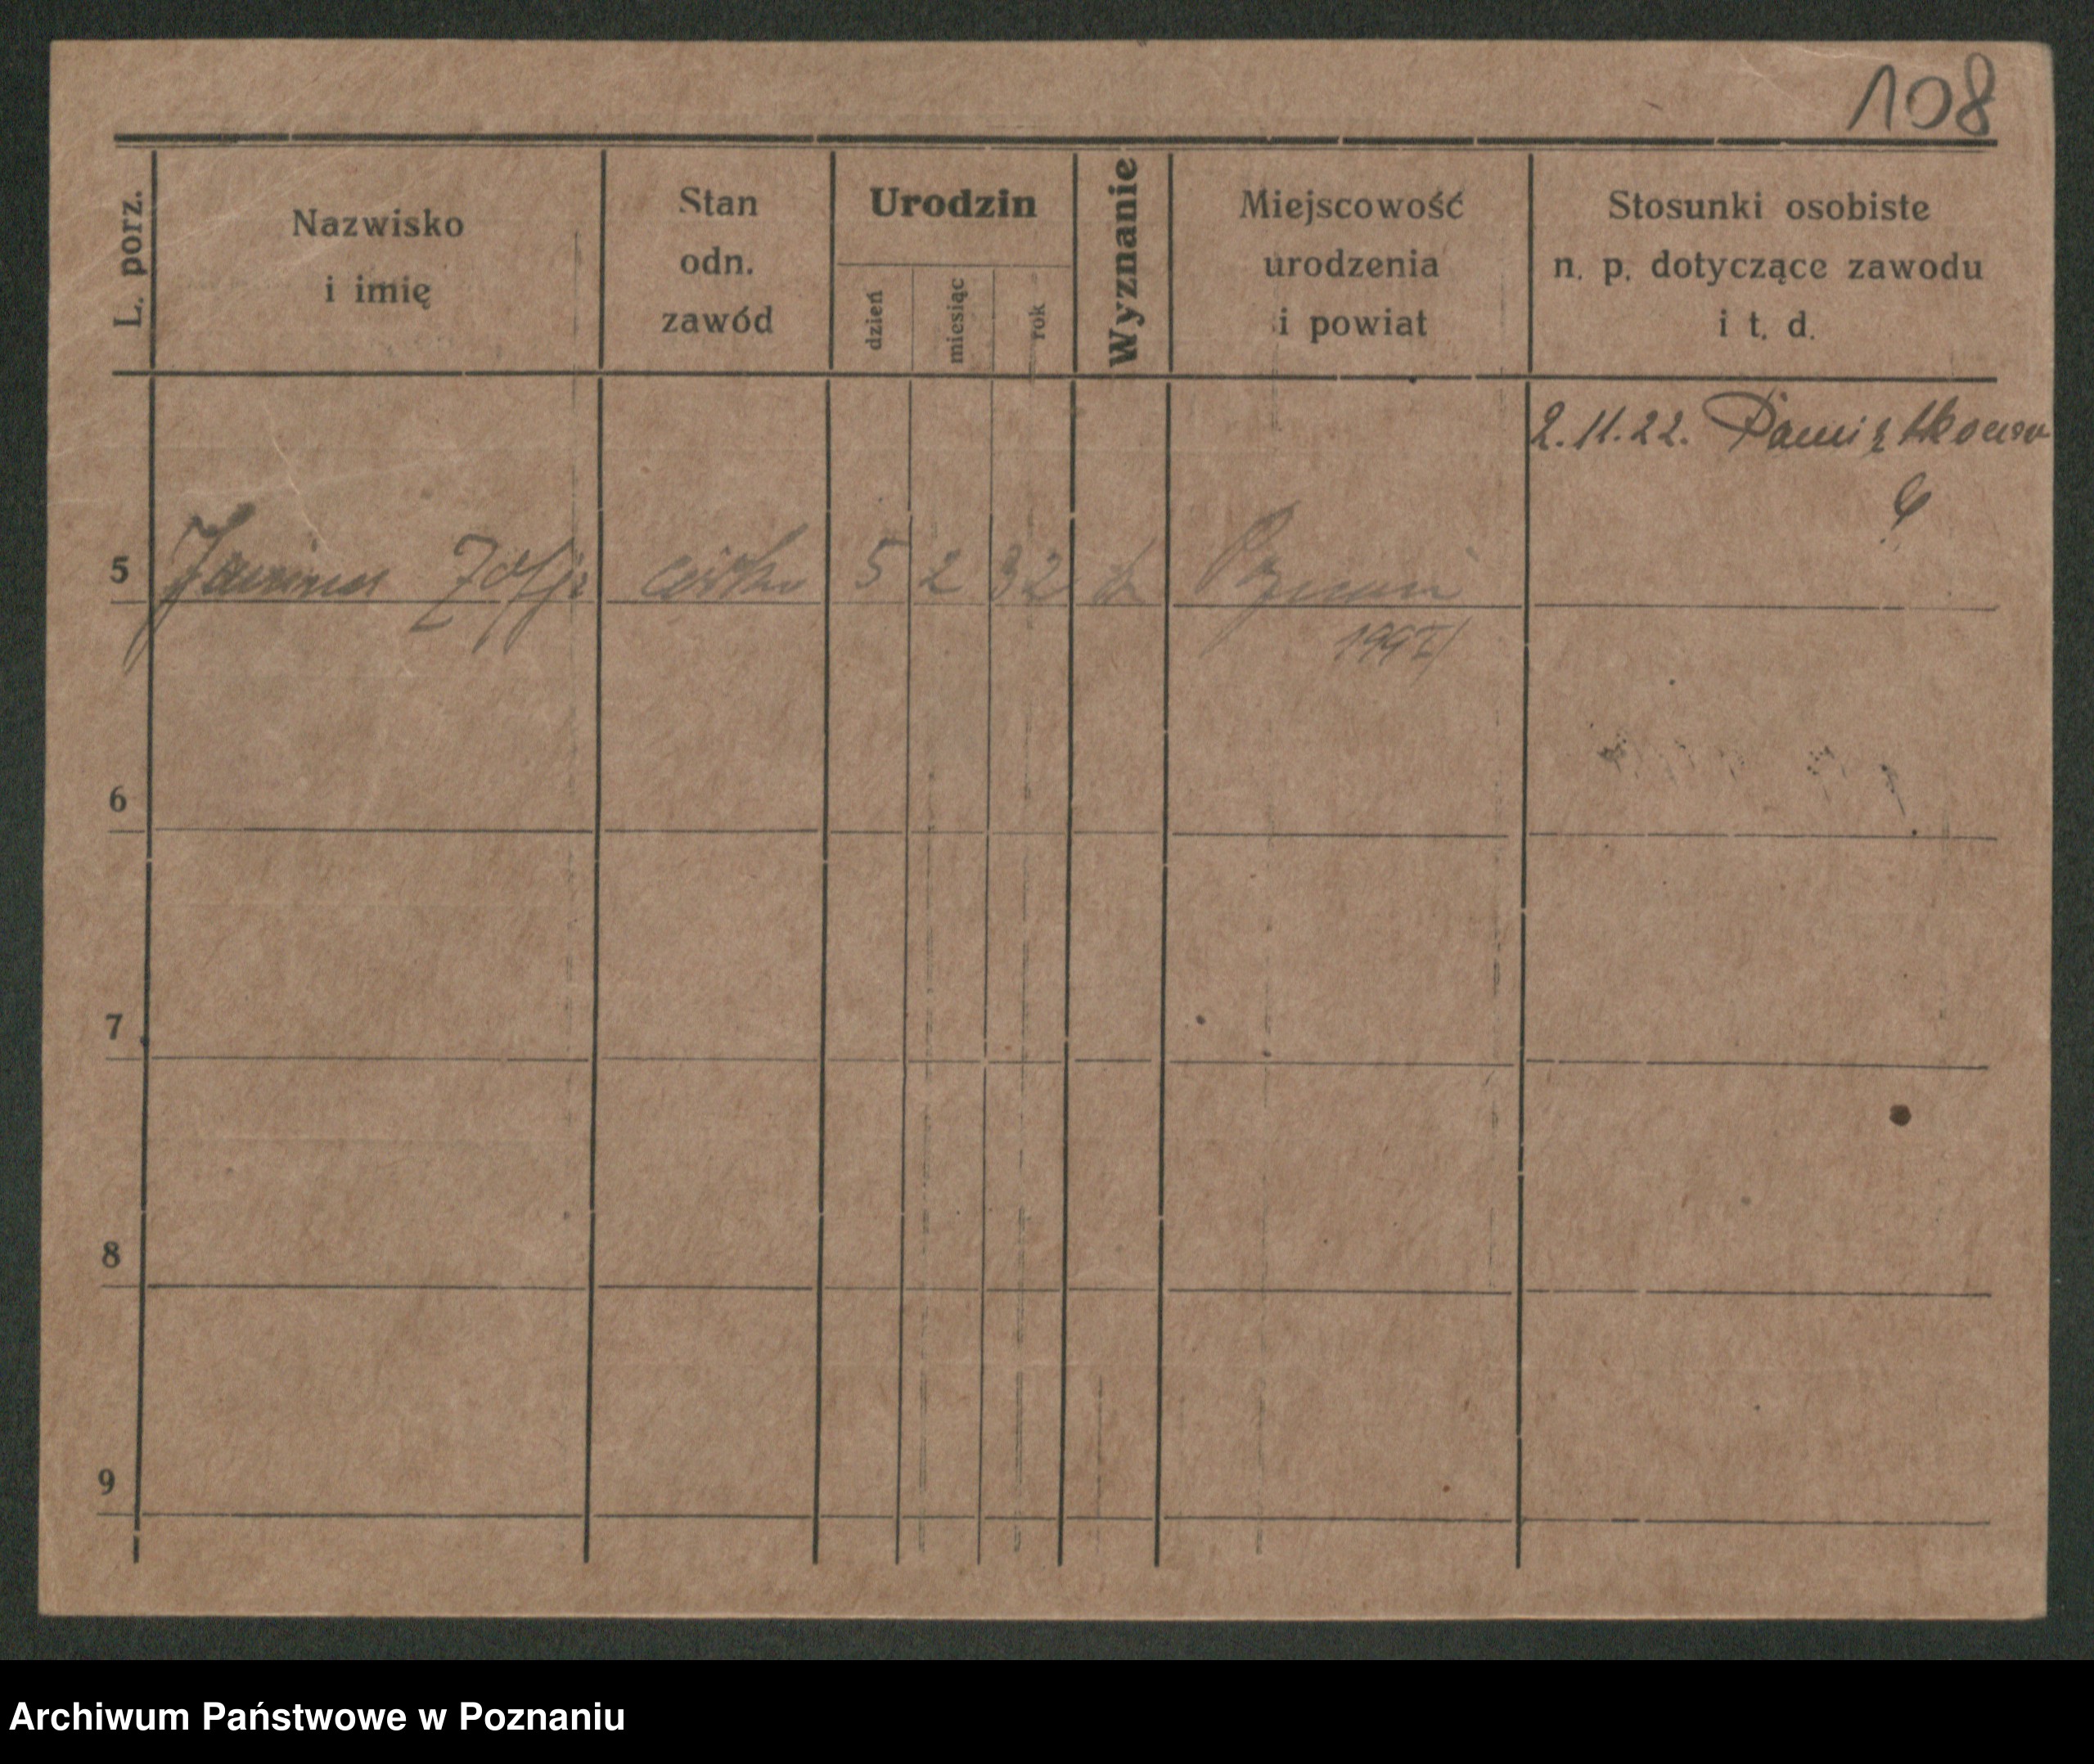 108
L. porz.
Nazwisko
i imię
Stan
odn.
zawód
Urodzin
dzień
miesiąc
rok
Wyznanie
Miejscowość
urodzenia
i powiat
Stosunki osobiste
n. p. dotyczące zawodu
i t. d.
2.11.22. Pamiątkowa
5 Janina Zofja córka 5 2 32 k
6
7
8
9
Archiwum Państwowe w Poznaniu